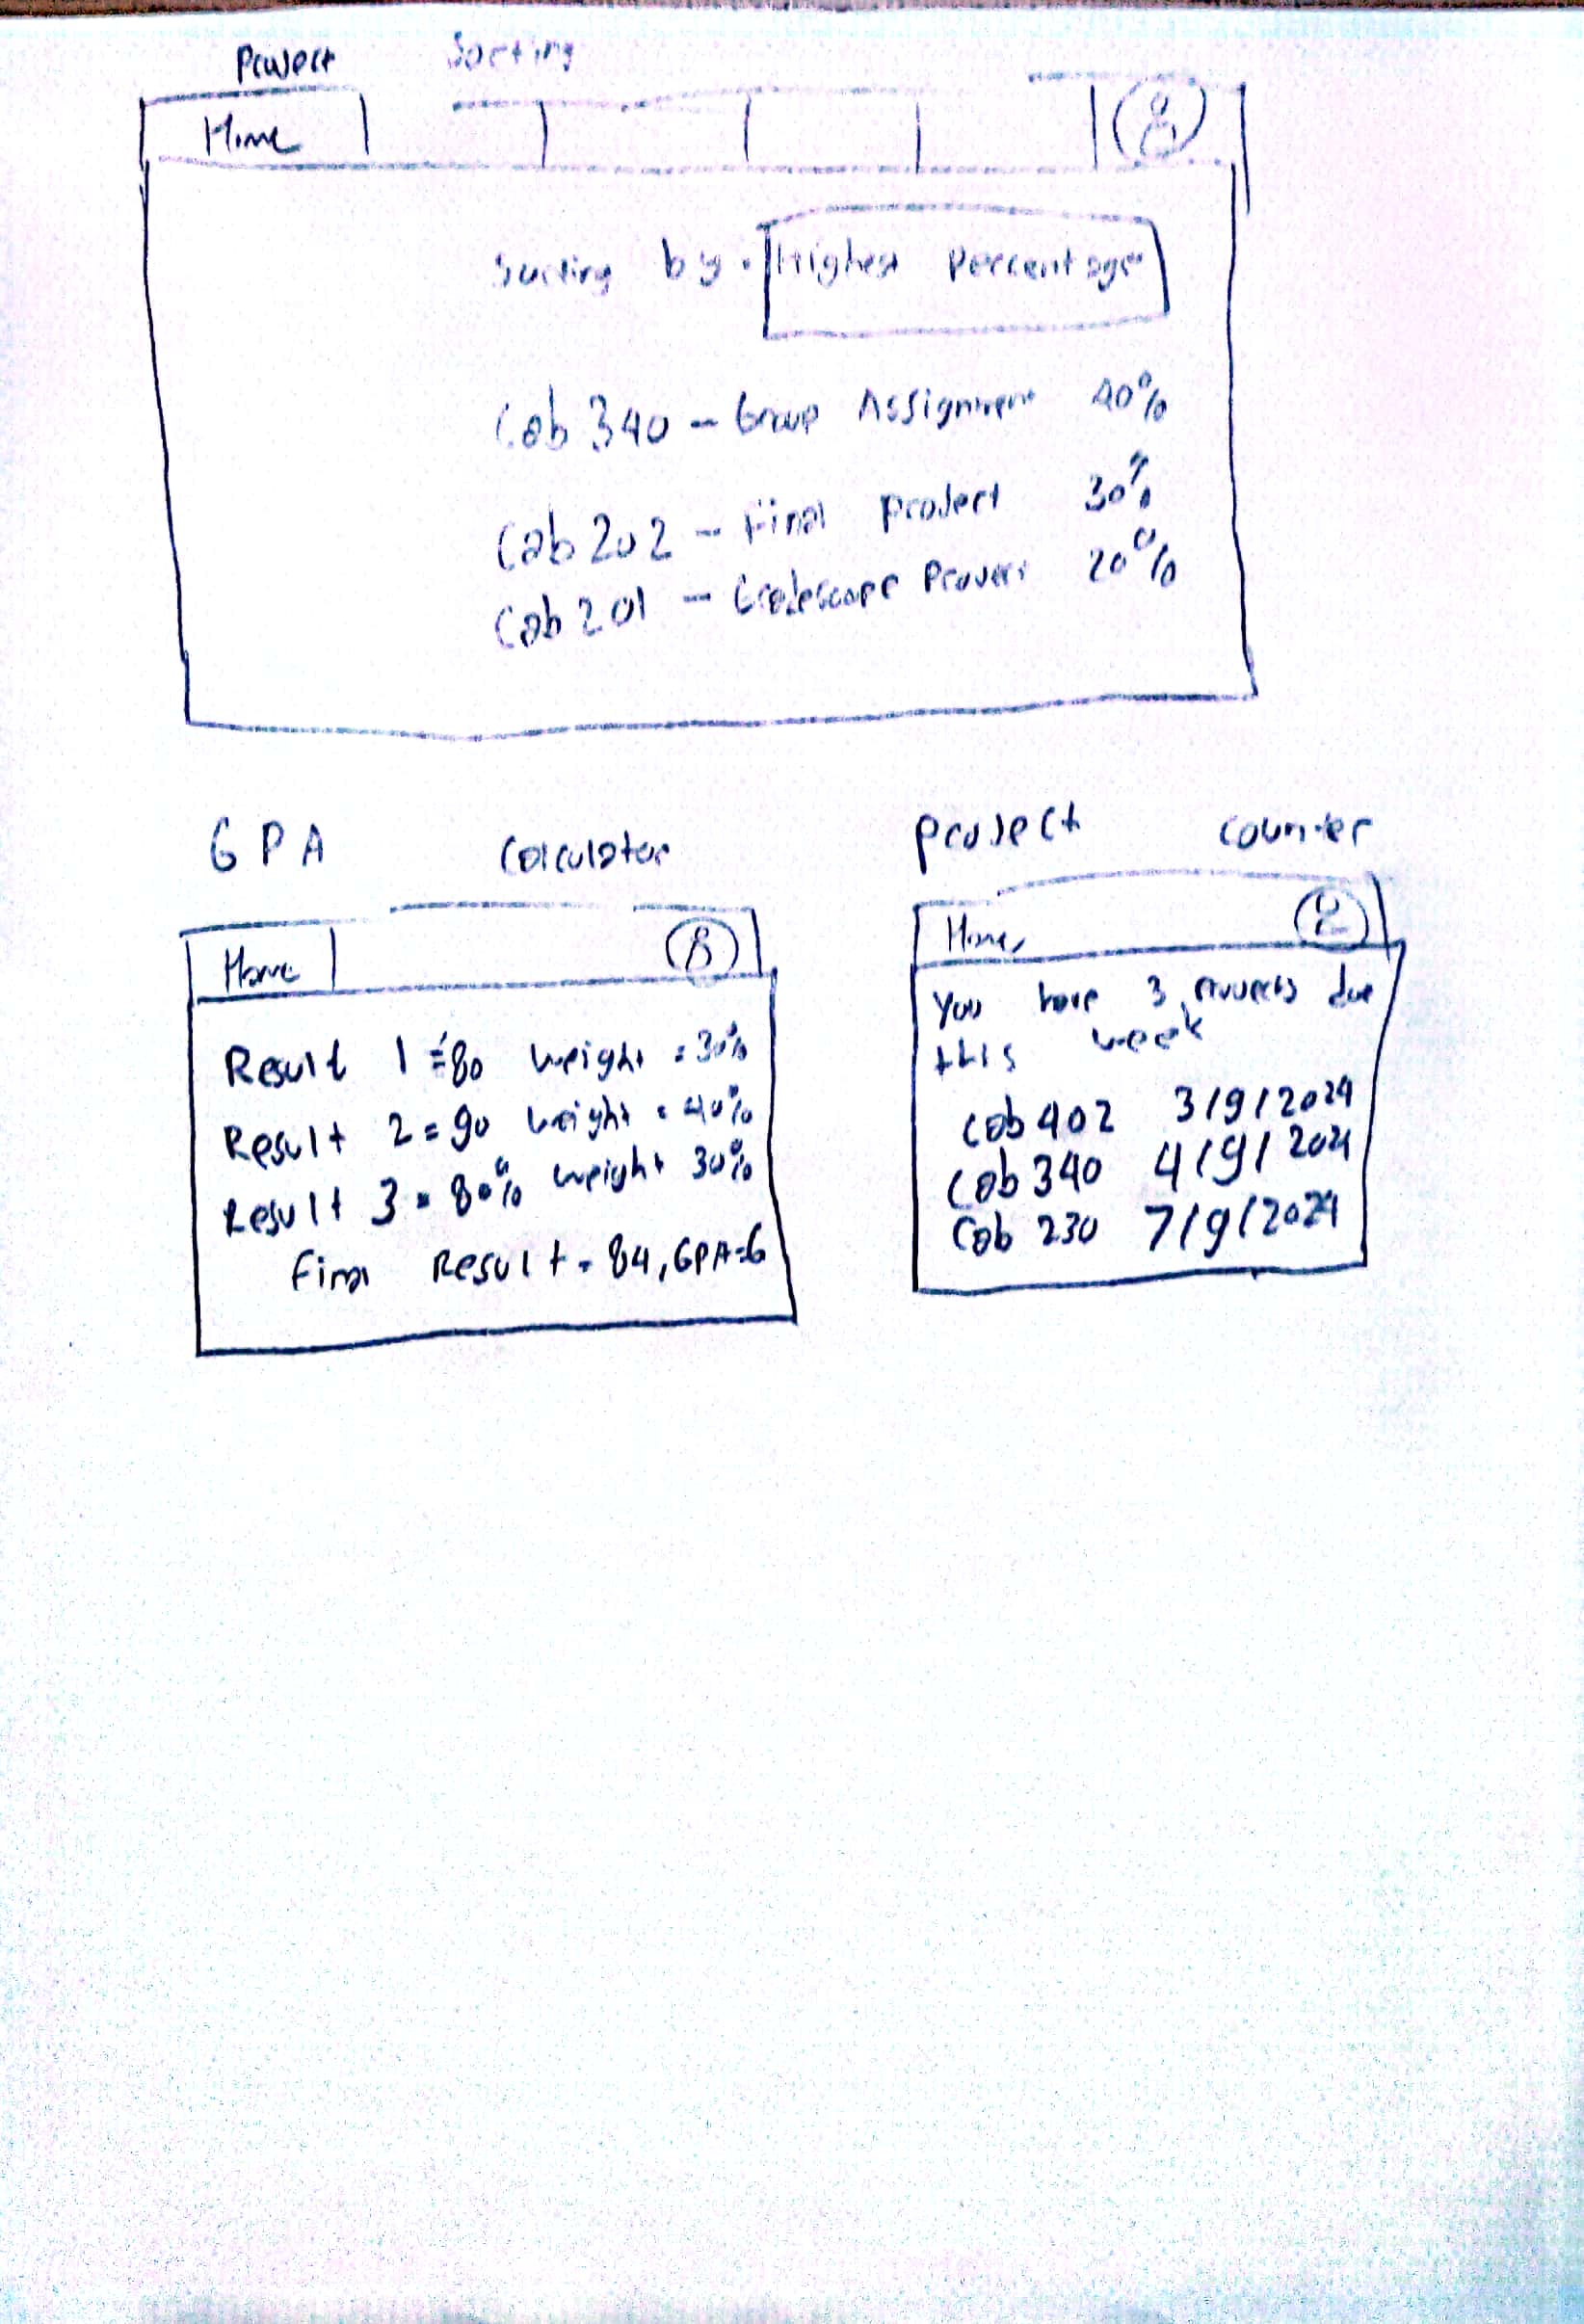 Project Sorting
Home
Sorting by: Highest Percentage
Cab 340 - Group Assignment 40%
Cab 202 - Final Project 30%
Cab 201 - Gradescope Project 20%
GPA Calculator
Home
Result 1 = 80 weight = 30%
Result 2 = 90 weight = 40%
Result 3 = 80% weight 30%
Final Result = 84, GPA=6
Project counter
Home
You have 3 projects due
this week
Cab 402 3/9/2024
Cab 340 4/9/2024
Cab 230 7/9/2024